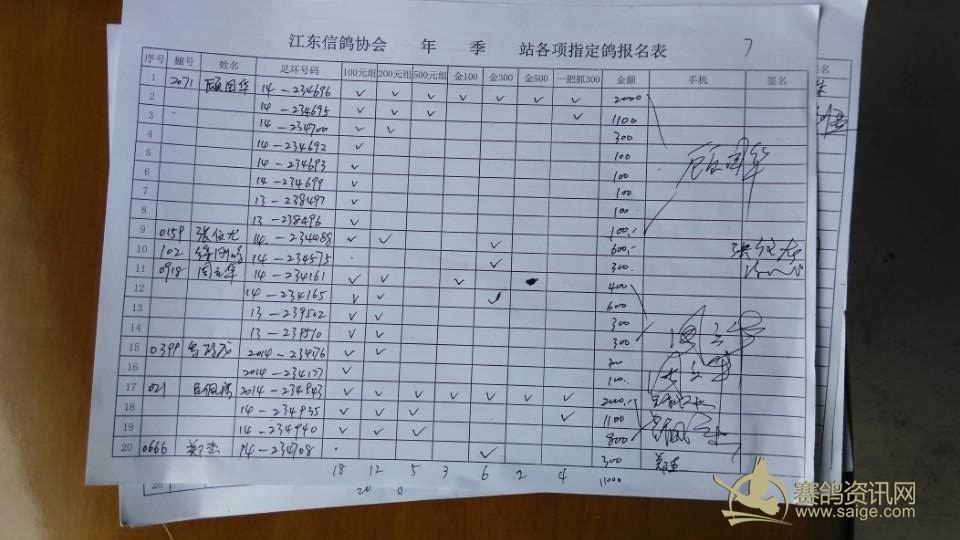 江东信鸽协会 年 季 站各项指定鸽报名表 7
序号 棚号 姓名 足环号码 100元组 200元组 500元组 金100 金300 金500 一把抓300 金额 手机 签名
1 2071 顾国华 14-234696 ✓ ✓ ✓ ✓ ✓ ✓ ✓ 2000
2 14-234695 ✓ ✓ ✓ ✓ 1100
3 14-234700 ✓ ✓ 300
4 14-234692 ✓ 100
5 14-234693 ✓ 100 顾国华
6 14-234699 ✓ 100
7 13-238497 ✓ 100
8 13-238496 ✓ 100.-
9 0159 张俊尤 14-234488 ✓ ✓ ✓ 600.- 张俊尤
10 102 14-234575 ✓ 300.
11 0918 14-234161 ✓ ✓ ✓ 400
12 14-234165 ✓ ✓ ✓ 600
13 13-239502 ✓ ✓ 300
14 13-239510 ✓ ✓ 300
15 0399 2014-234176 ✓ ✓
16 2014-234177 ✓ 100.
17 021 2014-234943 ✓ ✓ ✓ ✓ ✓ ✓ ✓ 2000.-
18 14-234935 ✓ ✓ ✓ ✓ 1100
19 14-234940 ✓ ✓ ✓ 800
20 0666 郑杰 14-234708 ✓ 300 郑杰
18 12 5 3 6 2 4 11000
20 0
签名
赛鸽资讯网
www.saige.com